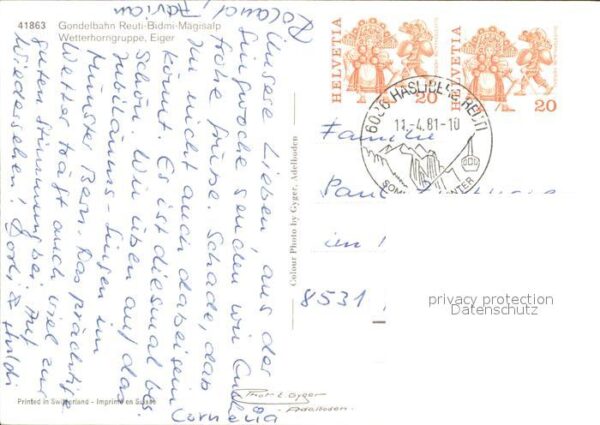 41863 Gondelbahn Reuti-Bidmi-Mägisalp
Wetterhorngruppe, Eiger
Roland, Favian
Unsere Lieben, aus der
Singwoche senden wir Euch
frohe Grüsse. Schade, dass
Ihr nicht auch dabei sein
könnt. Es ist diesmal bes.
schön. Wir üben auf das
Jubiläums-Singen im
Münster Bern. Das prächtige
Wetter trägt auch viel zur
guten Stimmung bei. Auf
Wiedersehen!
Cornelia
Colour Photo by Gyger, Adelboden
HELVETIA
20
HELVETIA
20
6086 HASLIBERG REUTI
11.-4.81-10
Familie
Paul
in
8531
privacy protection
Datenschutz
Printed in Switzerland - Imprimé en Suisse
Photo E Gyger
Adelboden.